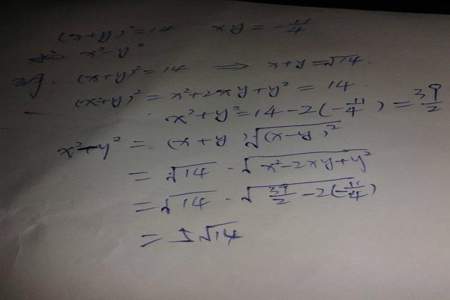 (x+y)²=14 xy=-11/4
x²-y²
(x+y)²=14 ⇒ x+y=√14
(x+y)²=x²+2xy+y²=14
x²+y²=14-2(-11/4)=39/2
x²-y²=(x+y)√(x-y)²
=√14·√x²-2xy+y²
=√14·√39/2-2(-11/4)
=5√14